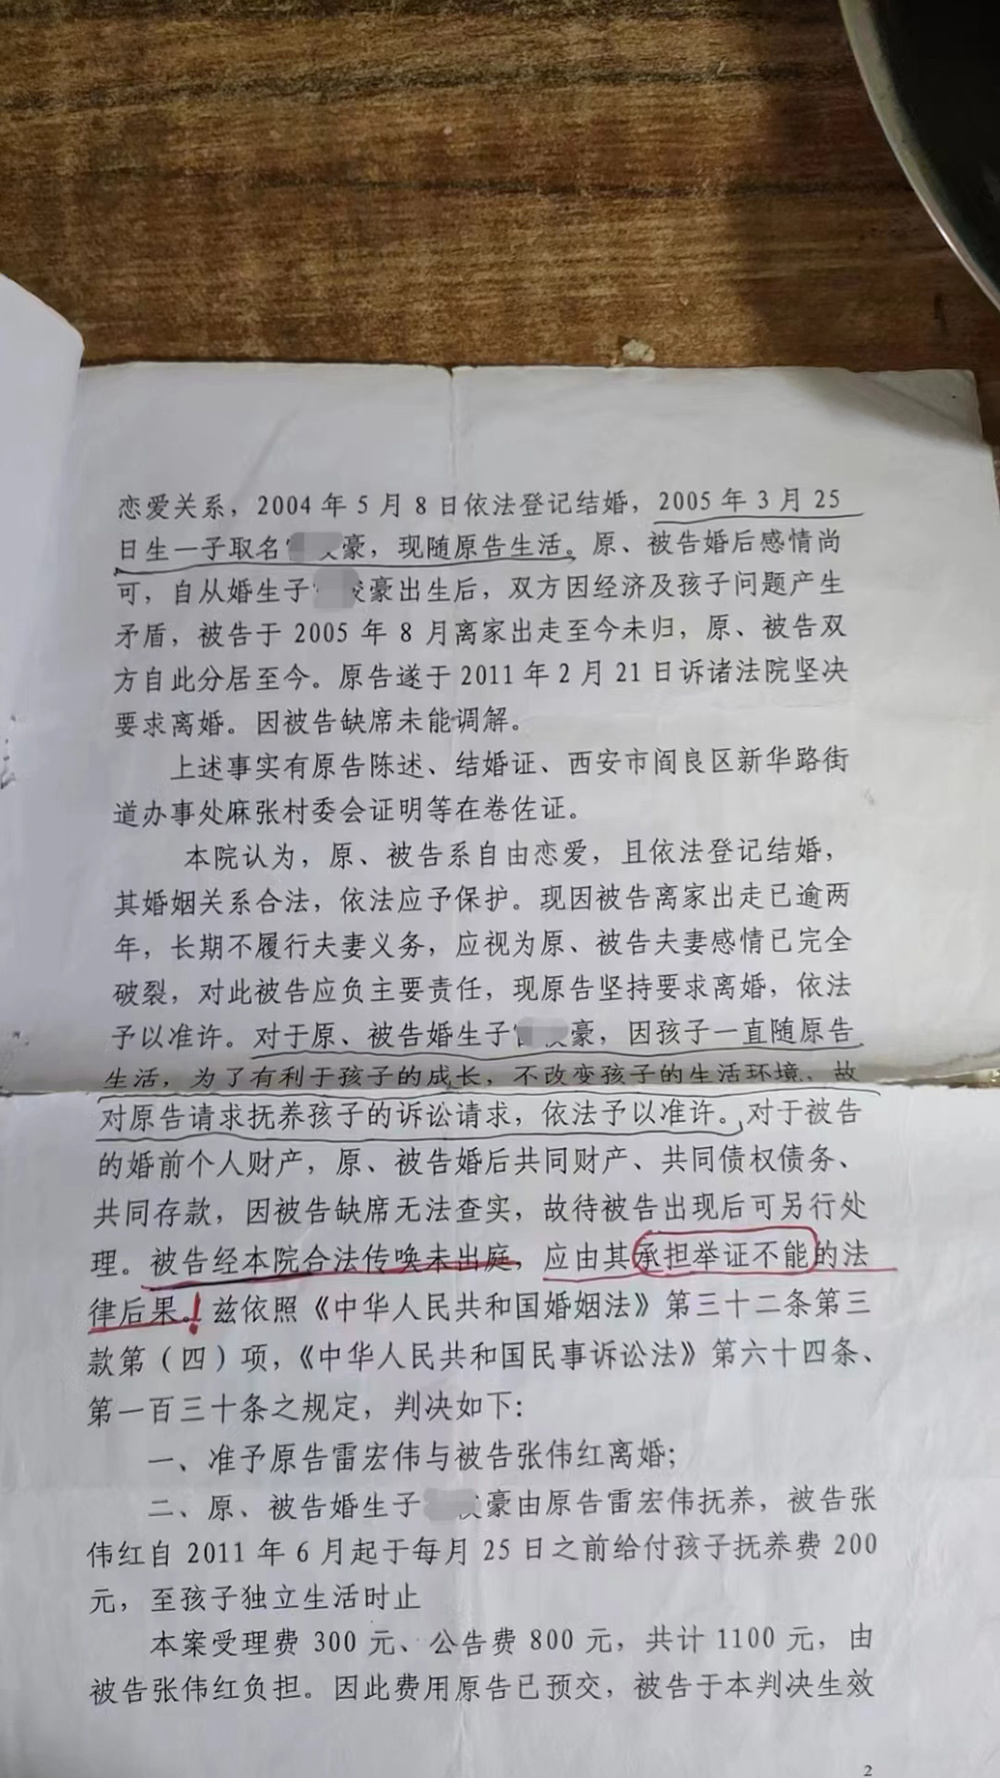 恋爱关系，2004 年 5 月 8 日依法登记结婚，2005 年 3 月 25
日生一子取名豪，现随原告生活。原、被告婚后感情尚
可，自从婚生子豪出生后，双方因经济及孩子问题产生
矛盾，被告于 2005 年 8 月离家出走至今未归，原、被告双
方自此分居至今。原告遂于 2011 年 2 月 21 日诉诸法院坚决
要求离婚。因被告缺席未能调解。
上述事实有原告陈述、结婚证、西安市阎良区新华路街
道办事处麻张村委会证明等在卷佐证。
本院认为，原、被告系自由恋爱，且依法登记结婚，
其婚姻关系合法，依法应予保护。现因被告离家出走已逾两
年，长期不履行夫妻义务，应视为原、被告夫妻感情已完全
破裂，对此被告应负主要责任，现原告坚持要求离婚，依法
予以准许。对于原、被告婚生子豪，因孩子一直随原告
生活，为了有利于孩子的成长，不改变孩子的生活环境，故
对原告请求抚养孩子的诉讼请求，依法予以准许。对于被告
的婚前个人财产，原、被告婚后共同财产、共同债权债务、
共同存款，因被告缺席无法查实，故待被告出现后可另行处
理。被告经本院合法传唤未出庭，应由其承担举证不能的法
律后果。！兹依照《中华人民共和国婚姻法》第三十二条第三
款第（四）项，《中华人民共和国民事诉讼法》第六十四条、
第一百三十条之规定，判决如下：
一、准予原告雷宏伟与被告张伟红离婚；
二、原、被告婚生子豪由原告雷宏伟抚养，被告张
伟红自 2011 年 6 月起于每月 25 日之前给付孩子抚养费 200
元，至孩子独立生活时止
本案受理费 300 元、公告费 800 元，共计 1100 元，由
被告张伟红负担。因此费用原告已预交，被告于本判决生效
2